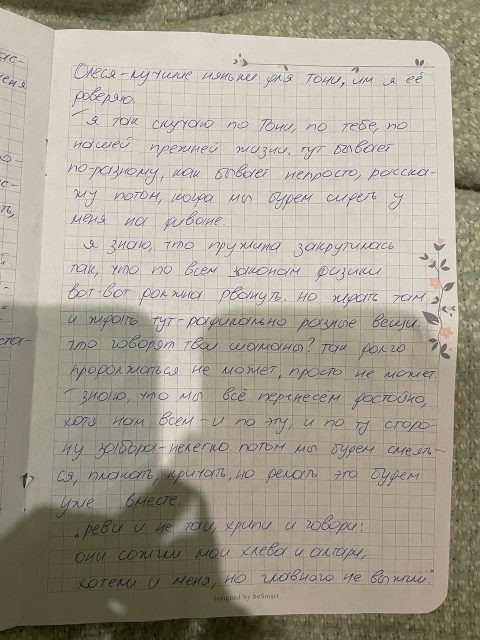 Олеся-лучшие няньки для Тони, им я её
доверяю.
я так скучаю по Тони, по тебе, по
нашей прежней жизни. тут бывает
по-разному, как бывает непросто, расска-
жу потом, когда мы будем сидеть у
меня на диване.
я знаю, что пружина закрутилась
так, что по всем законам физики
вот-вот должна рвануть. но ждать там
и ждать тут-радикально разные вещи.
что говорят твои шаманы? так долго
продолжаться не может, просто не может.
знаю, что мы всё перенесём достойно,
хотя нам всем-и по эту, и по ту сторо-
ну забора-нелегко. потом мы будем смеять-
ся, плакать, кричать, но делать это будем
уже вместе.
„реви и не таи, хрипи и говори:
они сожгли мои хлева и алтари,
хотели и меня, но главного не выжгли."
designed by beSmart